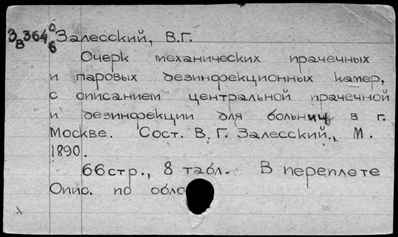 З В 364 б/6 Залесский, В.Г.
Очерк механических прачечных
и паровых дезинфекционных камер,
с описанием центральной прачечной
и дезинфекции для больниц в г.
Москве. Сост. В. Г. Залесский., М.
1890.
66стр., 8 табл. В переплете
Опис. по обло